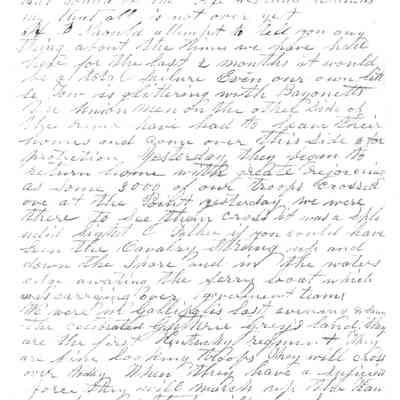 my "what all" is not over yet
If I should attempt to tell you any
thing about the times we have had
here for the last 2 months it would
be a total failure Even our own litt
le Town is glittering with Bayonetts
The Union men on the other side of
the river have had to leave their
homes and come over this side for
protection, Yesterday they began to
return home with great rejoicing
as some 3000 of our troops crossed
over at the Point yesterday we were
there to see them cross it was a sple
ndid sight O Father if you would have
seen the Cavalry strung up and
down the shore and in the waters
edge awaiting the ferry boat which
was carrying over government teams
We were in Gallipolis last evening when
the celebrated Guthrie Greys land. they
are the first Kentucky regiment They
are fine looking troops they will cross
over today When they have a sufficient
force, they will march up the Kan